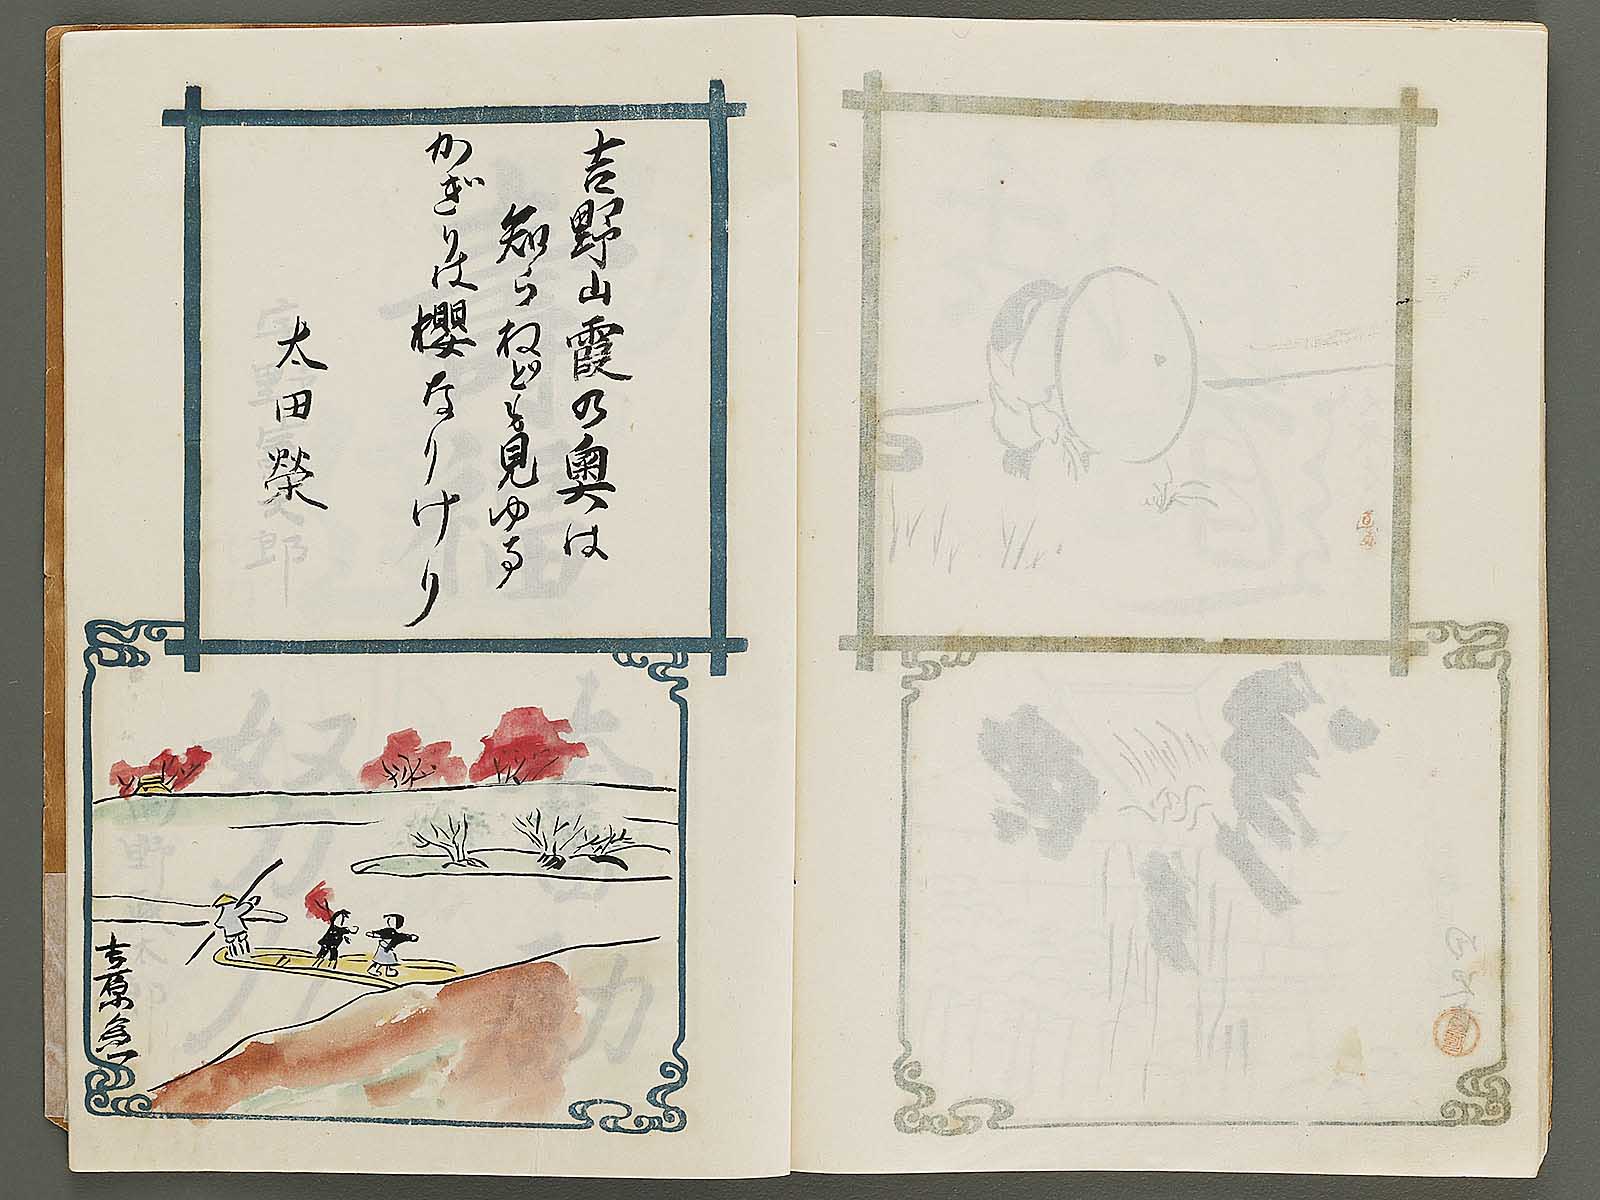 吉野山霞の奥は
知らねども見ゆる
かぎりは櫻なりけり
太田榮
吉原